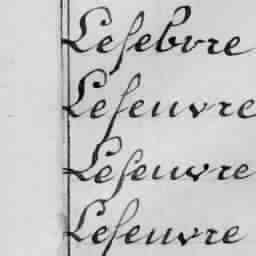 Lefebvre
Lefeuvre
Lefeuvre
Lefeuvre